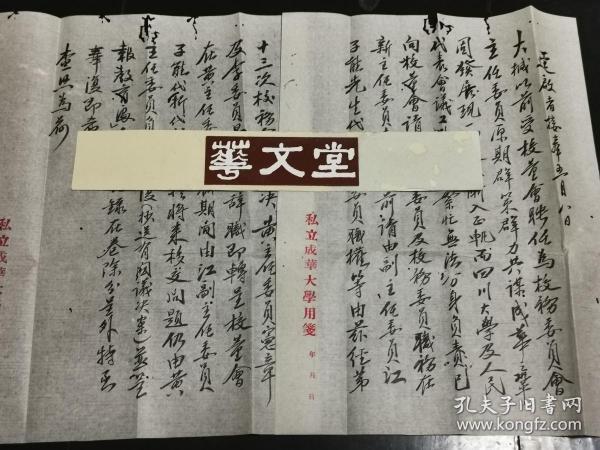 逕啟者接奉五月八日
大械以前受校董會聘任為校務委員會
主任委員原期群策群力共謀成華鞏
固發展現
入正軌而四川大學及人民
代表會議工
繁忙無法分身負責已
向校董會請
委員及校務委員職務在
新主任委員
前請由副主任委員江
子能先生代
委員職權等由茲經第
私立成華大學用箋
年 月 日
十三次校務
決黃主任委員憲章
及李委員
辭職即轉呈校董會
在黃主任委
期間由江副主任委員
子能代行
將來移交問題仍由黃
主任委員負
後(附送有關議決案)並呈
報教育
錄在卷除分呈外特函
奉復即希
查照為荷
私立成華大
華文堂
孔夫子旧书网
www.kongfz.com